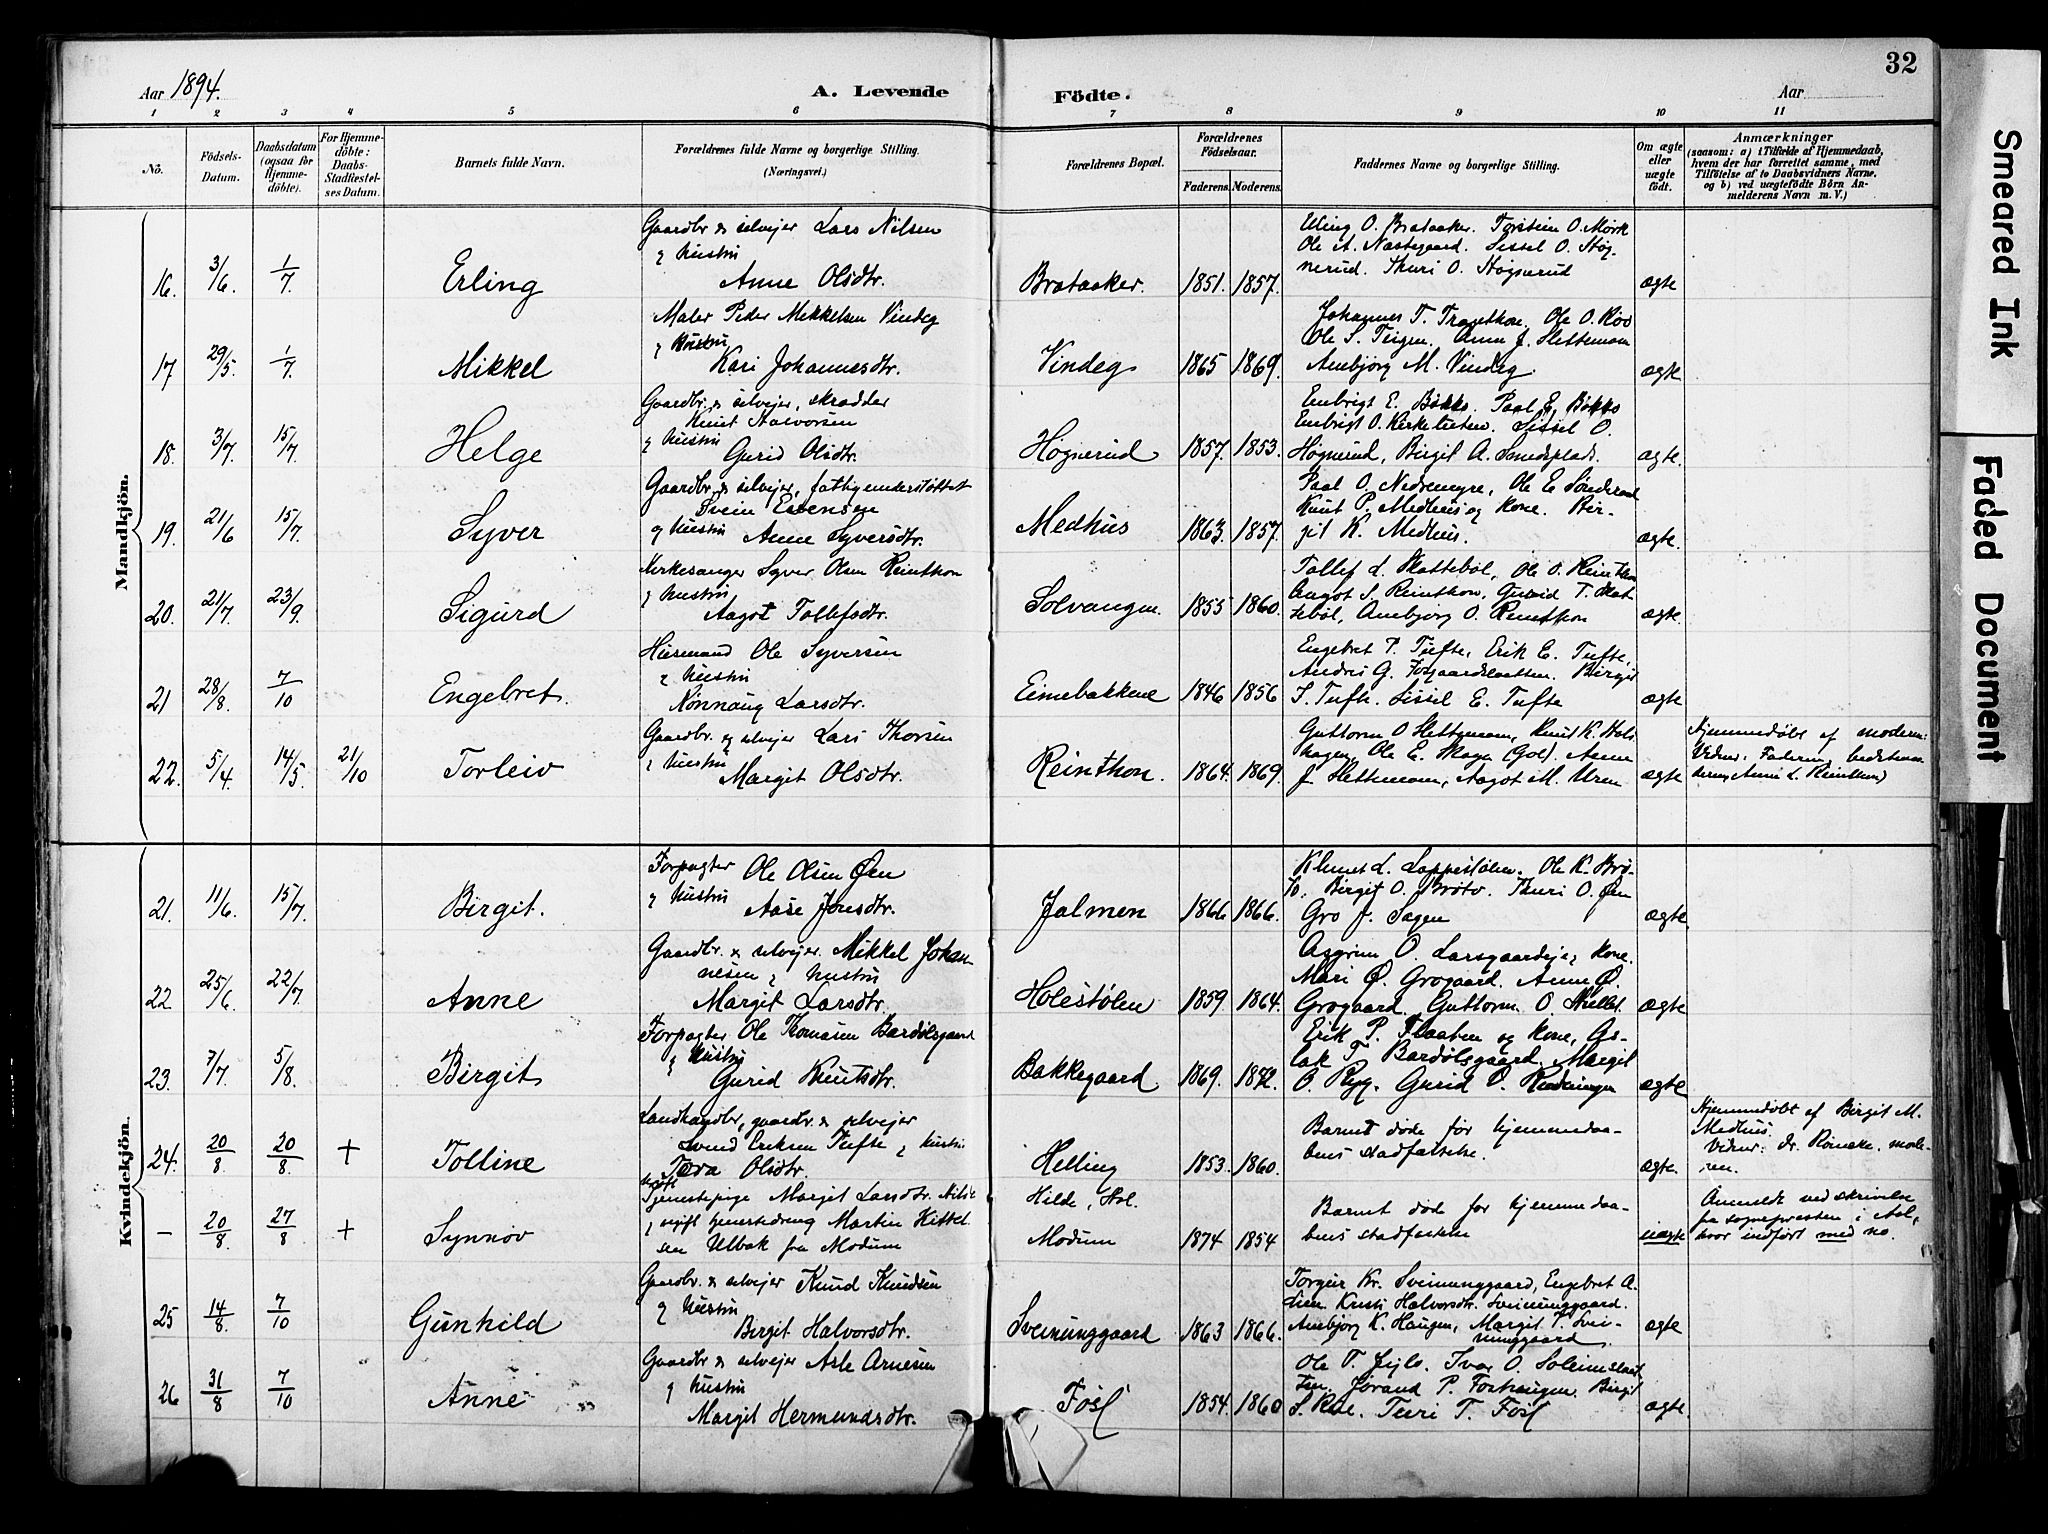 32
Aar 1894.
A. Levende Födte.
Aar
1 2 3 4 5 6 7 8 9 10 11
No.
Födsels-Datum.
Daabsdatum (ogsaa for Hjemmedöbte).
For Hjemmedöbte: Daabs-Stadfæstelses Datum.
Barnets fulde Navn.
Forældrenes fulde Navne og borgerlige Stilling. (Næringsvei.)
Forældrenes Bopæl.
Forældrenes Födselsaar.
Faderens. Moderens.
Faddernes Navne og borgerlige Stilling.
Om ægte eller uægte födt.
Anmærkninger
(saasom: a) i Tilfælde af Hjemmedaab,
hvem der har forrettet samme, med
Tilföielse af to Daabsvidners Navne,
og b) ved uægtefödte Börn An-
melderens Navn m. V.)
Mandkjön.
16. 3/6. 1/7. Erling
Gaardbr & selvejer Lars Nilsen
& hustru
Anne Olsdtr.
Brataaker. 1851. 1857.
O. Brataaker. Torstein O. Mørk
Ole A. Næstegaard. Sissel O. Høg-
nerud. Thuri O. Høgnerud
ægte
17 29/5. 1/7. Mikkel
Maler Peder Mikkelsen Vindeg
& hustru
Kari Johannesdtr.
Vindeg 1865 1869.
Johannes T. Ole O.
Ole S. Teigen. Anne J.
Ambjørg M. Vindeg.
ægte
18. 3/7. 15/7. Helge
Gaardbr. & selvejer, skrædder
Knut Halvorsen
& hustru
Gurid Olsdtr.
Høgnerud 1857. 1853.
Embrigt E. Bøkko. Paal E. Bøkko
Embrigt O. Sissel O.
Høgnerud, Birgit A. Smedsplads.
ægte.
19. 21/6 15/7. Syver
Gaardbr. & selvejer, fattigunderstøttet
Svein Evensen
og hustru Anne Syversdtr.
Medhus 1863. 1857.
Paal O. Nedremyre, Ole E.
Knut P. Medhus og kone. Bir-
git K. Medhus.
ægte.
20. 21/7. 23/9. Sigurd
Kirkesanger Syver Olsen Reinthon
& hustru
Aagot Tollefsdtr.
Solvangen. 1855 1860.
Tollef L. Skattebøl, Ole O. Reinthon
Aagot S. Reinthon, Gurid T. Skat-
tebøl, Ambjørg O. Reinthon
ægte.
21 28/8. 7/10 Engebret.
Husmand Ole Syversen
& hustru
Rønnaug Larsdtr.
Eimebakkene 1846 1856
Engebret P. Tufte, Erik E. Tufte,
Andres G. Birgit
S. Tufte. Sissil E. Tufte
ægte
22. 5/4. 14/5. 21/10 Torleiv
Gaardbr. og selvejer Lars Thorsen
& hustru
Margit Olsdtr.
Reinthon. 1864. 1869.
Guttorm O Hettemoen, Knut K.
Ole E. Skaga (Gol). Anne
J. Hettemoen, Aagot M. Uren
ægte
Hjemmedøbt af moderen:
Vidner: Faderen, bedstemo-
deren Anne L. Reinthon)
Kvindekjön.
21. 11/6. 15/7. Birgit.
Forpagter Ole Olsen Øen
& hustru
Aase Jonsdtr.
Jalmen 1866 1866.
Klemet L. Lappestølen. Ole K. Brø-
to. Birgit O. Brøto. Thuri O. Øen
Gro J. Sagen
ægte
22 25/6. 22/7. Anne
Gaardbr & selvejer. Mikkel Johan-
nesen & hustru
Margit Larsdtr.
Holestølen 1859 1864.
Asgrim O. Larsgaard & kone.
Mari Ø. Grogaard. Anne Ø.
Grogaard. Guttorm O.
ægte
23. 7/7. 5/8. Birgit
Forpagter Ole Thomasen Bardølsgaard
& hustru
Gurid Knutsdtr.
Bakkegaard 1869. 1872.
Erik P. Flaaten og kone, As-
lak T. Bardølsgaard. Margit
O. Ryg. Gurid O.
ægte
24. 20/8. 20/8. + Tolline
Landhandler, gaardbr. & selvejer
Svend Eriksen Tufte & hustru
Tora Olsdtr.
Helling 1853. 1860.
Barnet døde før hjemmedaa-
bens stadfæstelse.
ægte.
Hjemmedøbt af Birgit M.
Medhus.
Vidner: dr. mode-
ren.
— 20/8. 27/8 + Synnøv
Tjenestepige Margit Larsdtr. Hilde
& ugift tjenestedreng Martin Kittel-
sen Ulbak fra Modum
Hilde, Hol.
Modum 1874 1854
Barnet døde før hjemmedaa-
bens stadfæstelse
uægte
Anmeldt ved skrivelse
fra sognepresten i Aal,
hvor indført med no.
25 14/8. 7/10 Gunhild
Gaardbr. & selvejer Knud Knudsen
& hustru
Birgit Halvorsdtr.
Sveinunggaard 1863 1866.
Torgeir Kr. Sveinunggaard, Engebret A.
Lien. Kristi Halvorsdtr. Sveinunggaard.
Ambjørg K. Haugen, Margit T. Svei-
nunggaard
ægte
26 31/8 7/10 Anne
Gaardbr & selvejer Asle Arnesen
& hustru
Margit Hermundsdtr.
Fosl 1854. 1860
Ole T. Ivar O.
Jørand P. Birgit
S. Rue. Turi T. Fosl
ægte.
Smeared Ink
Faded Document